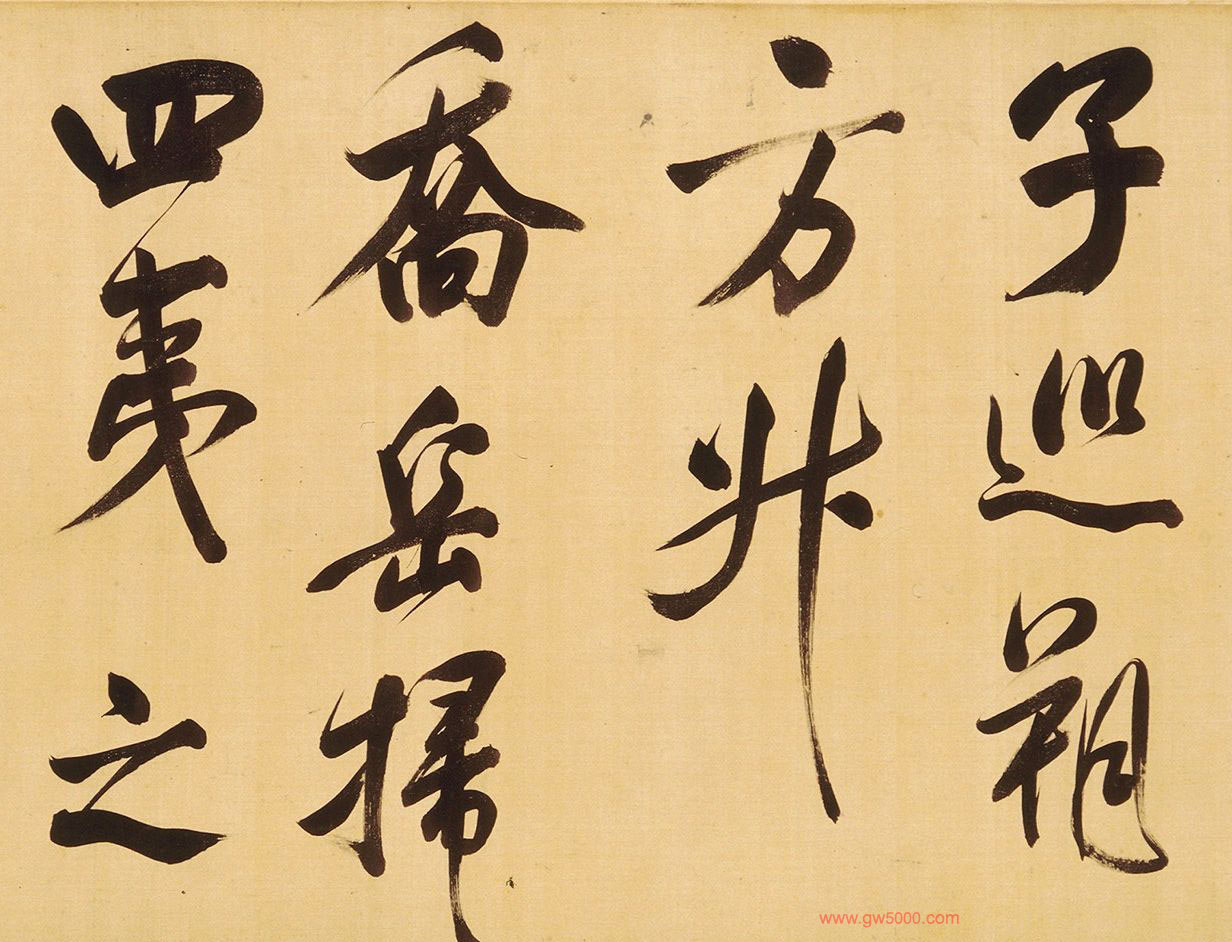 子巡朔
方升
喬岳掃
四夷之
www.gw5000.com